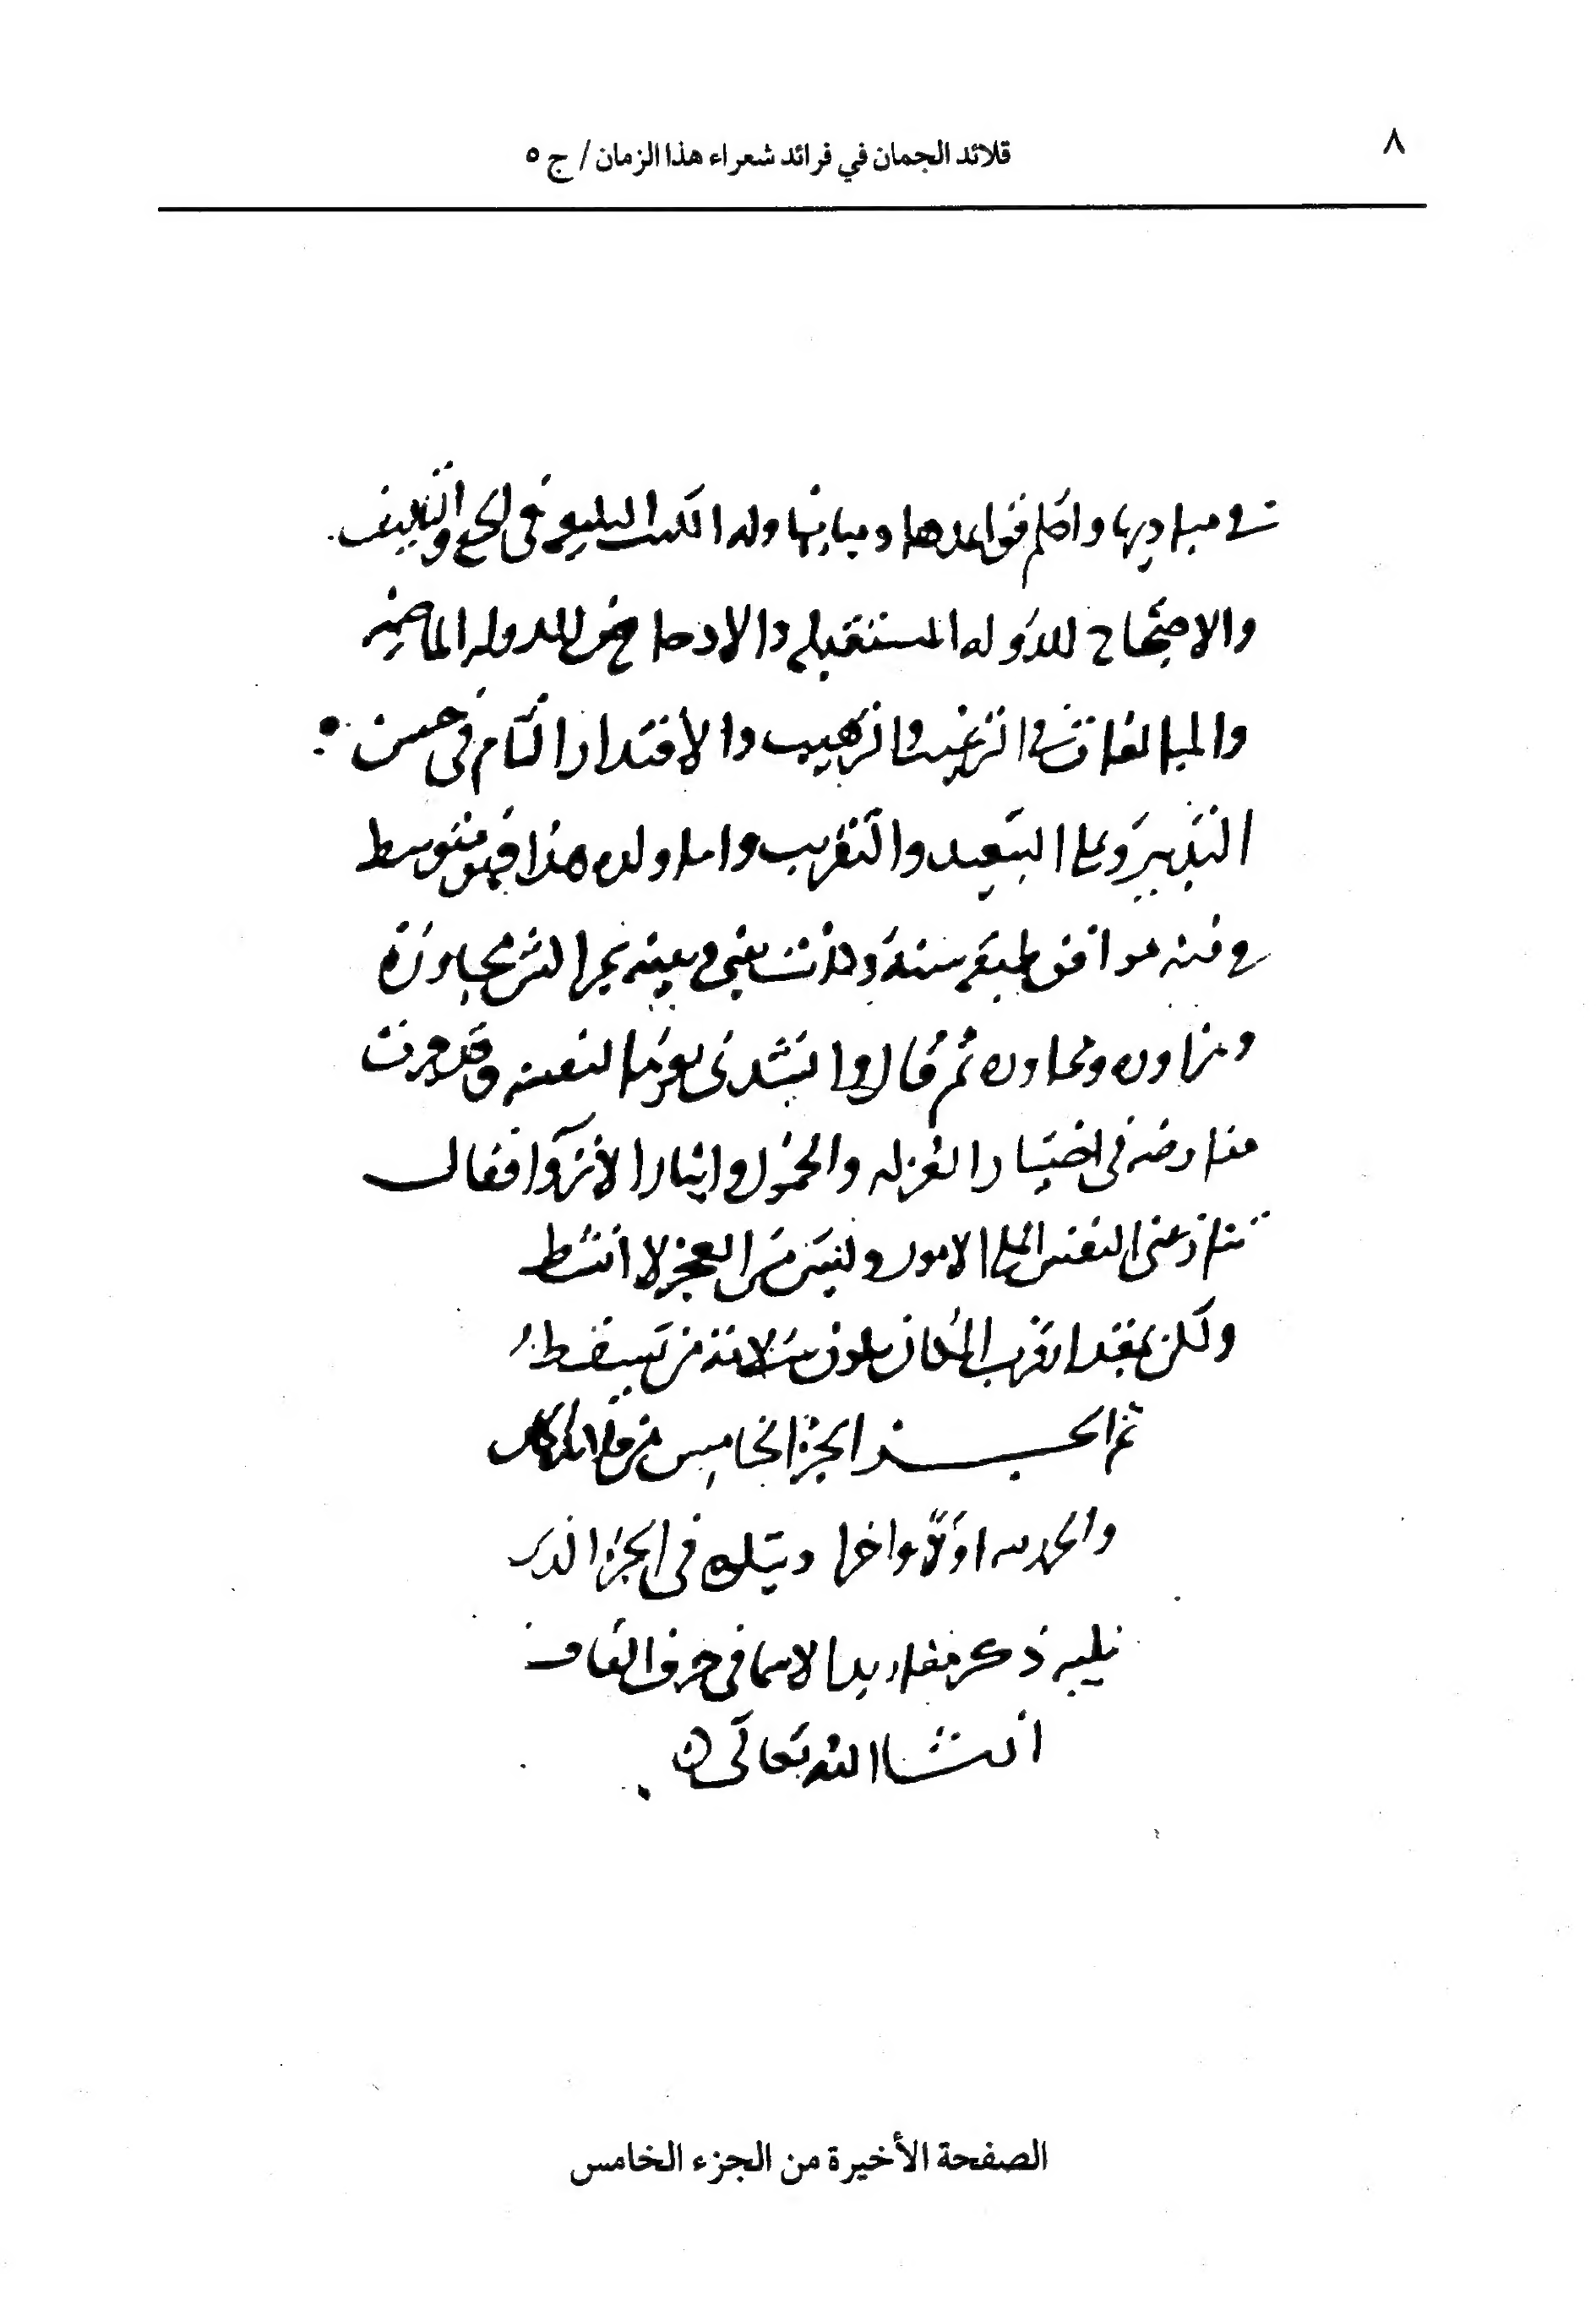 ٨
قلائد الجمان في فرائد شعراء هذا الزمان / ج ٥
في مباديها واحكم قواعدها ومبانيها وله الكتب البليغه في الجمع والتاليف
والاحتجاج للدوله المستقبله والادحاض للدوله الماضيه
والمبالغات في الترغيب والترهيب والاقتدار التام في حسن
التدبير وعلى التبعيد والتقريب واما ولده هذا فهو متوسط
في فنه موافق طبقه سنه وكانت بيني وبينه بحران مجاوزة
ومزاوره ومحاوره ثم قال وانشدني بعزما لنفسه وقد جرت
مفاوضه في اختيار العزله والخمول وايثار الانزوا فقال
تنازعني النفس اعلى الامور وليس من العجز لا انشط
ولكن بمقدار قرب المكان تكون سلامة من يسقط
نجز الجزء الخامس من قلائد
والحمد لله اولا واخرا ويتلوه في الجزء الذي
يليه ذكر مفاريد الاسما في حرف القاف
ان شا الله تعالى
الصفحة الأخيرة من الجزء الخامس